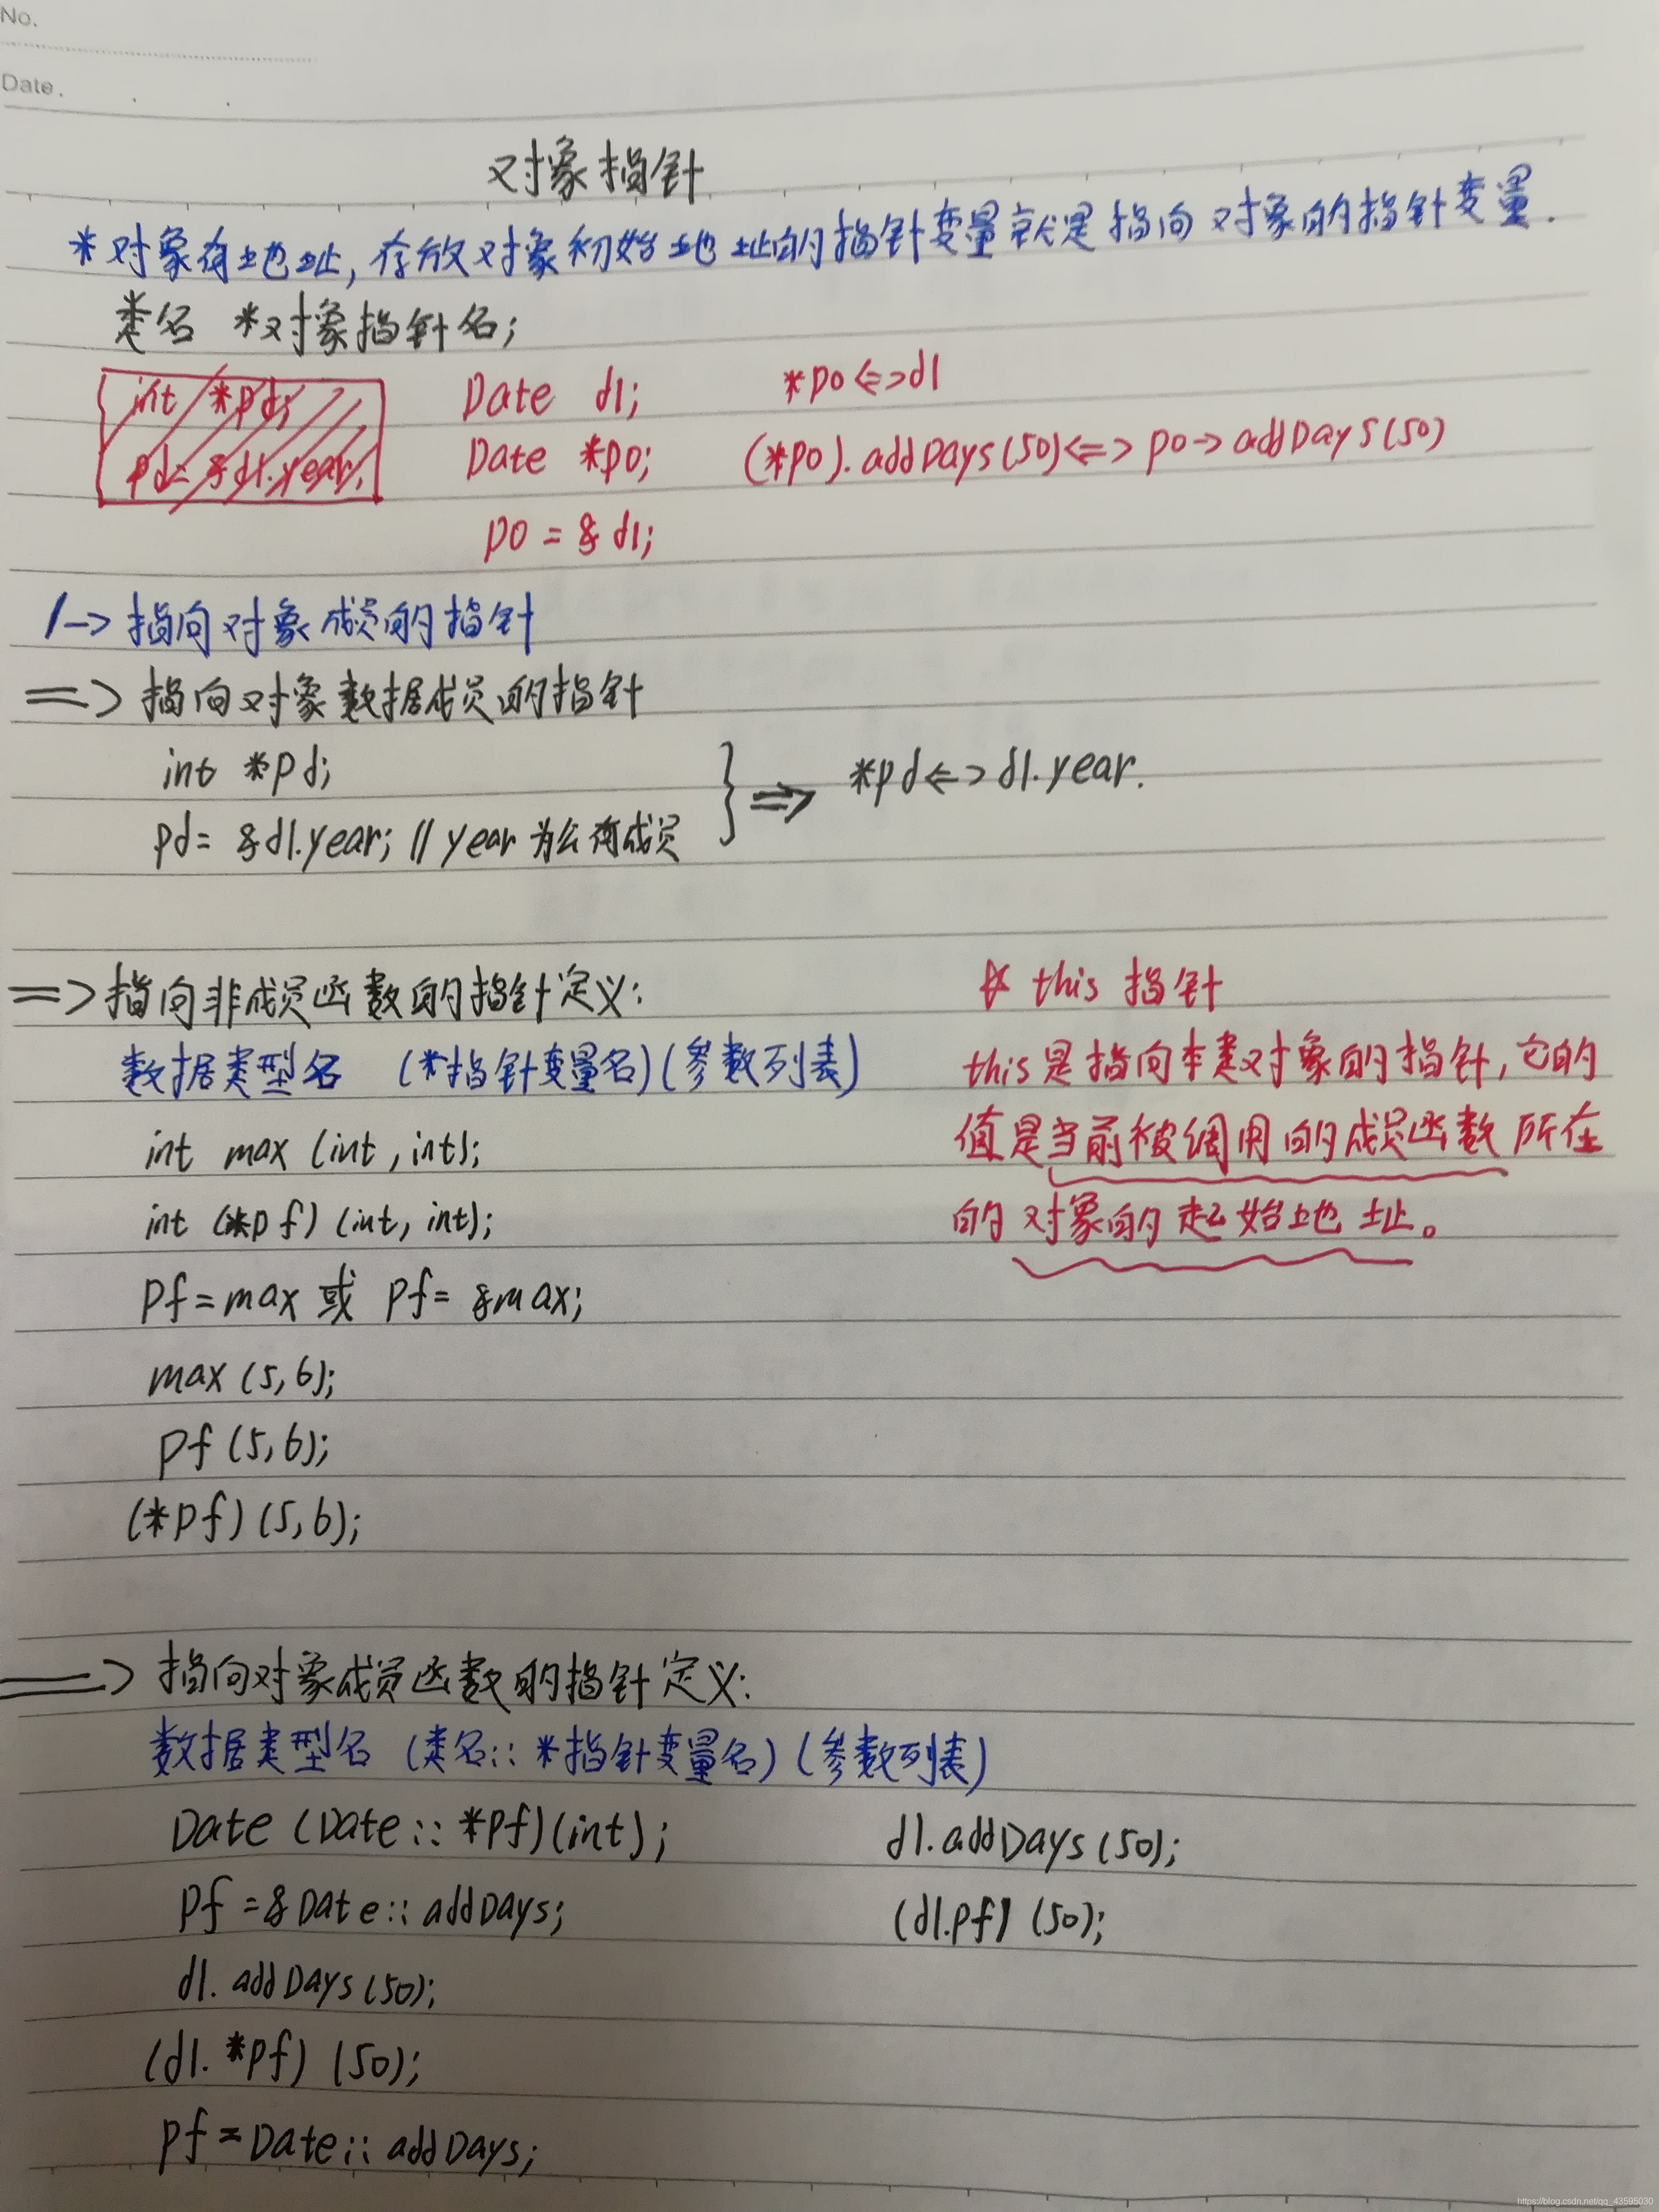 No.
Date.
对象指针
*对象有地址,存放对象初始地址的指针变量就是指向对象的指针变量.
类名 *对象指针名;
int *pd;
pd=&d1.year;
Date d1;
Date *po;
po = &d1;
*po<=>d1
(*po).addDays(50)<=>po->addDays(50)
1-> 指向对象成员的指针
=> 指向对象数据成员的指针
int *pd;
pd= &d1.year; // year 为公有成员
} => *pd<=>d1.year.
=>指向非成员函数的指针定义:
数据类型名 (*指针变量名)(参数列表)
int max (int, int);
int (*pf) (int, int);
pf=max 或 pf= &max;
max (5,6);
pf (5,6);
(*pf) (5,6);
☆ this 指针
this是指向本类对象的指针,它的
值是当前被调用的成员函数所在
的对象的起始地址。
=> 指向对象成员函数的指针定义:
数据类型名 (类名::*指针变量名)(参数列表)
Date (Date::*pf)(int);
pf =&Date::addDays;
d1.addDays(50);
(d1.*pf) (50);
pf=Date::addDays;
d1.addDays(50);
(d1.pf) (50);
https://blog.csdn.net/qq_43595030